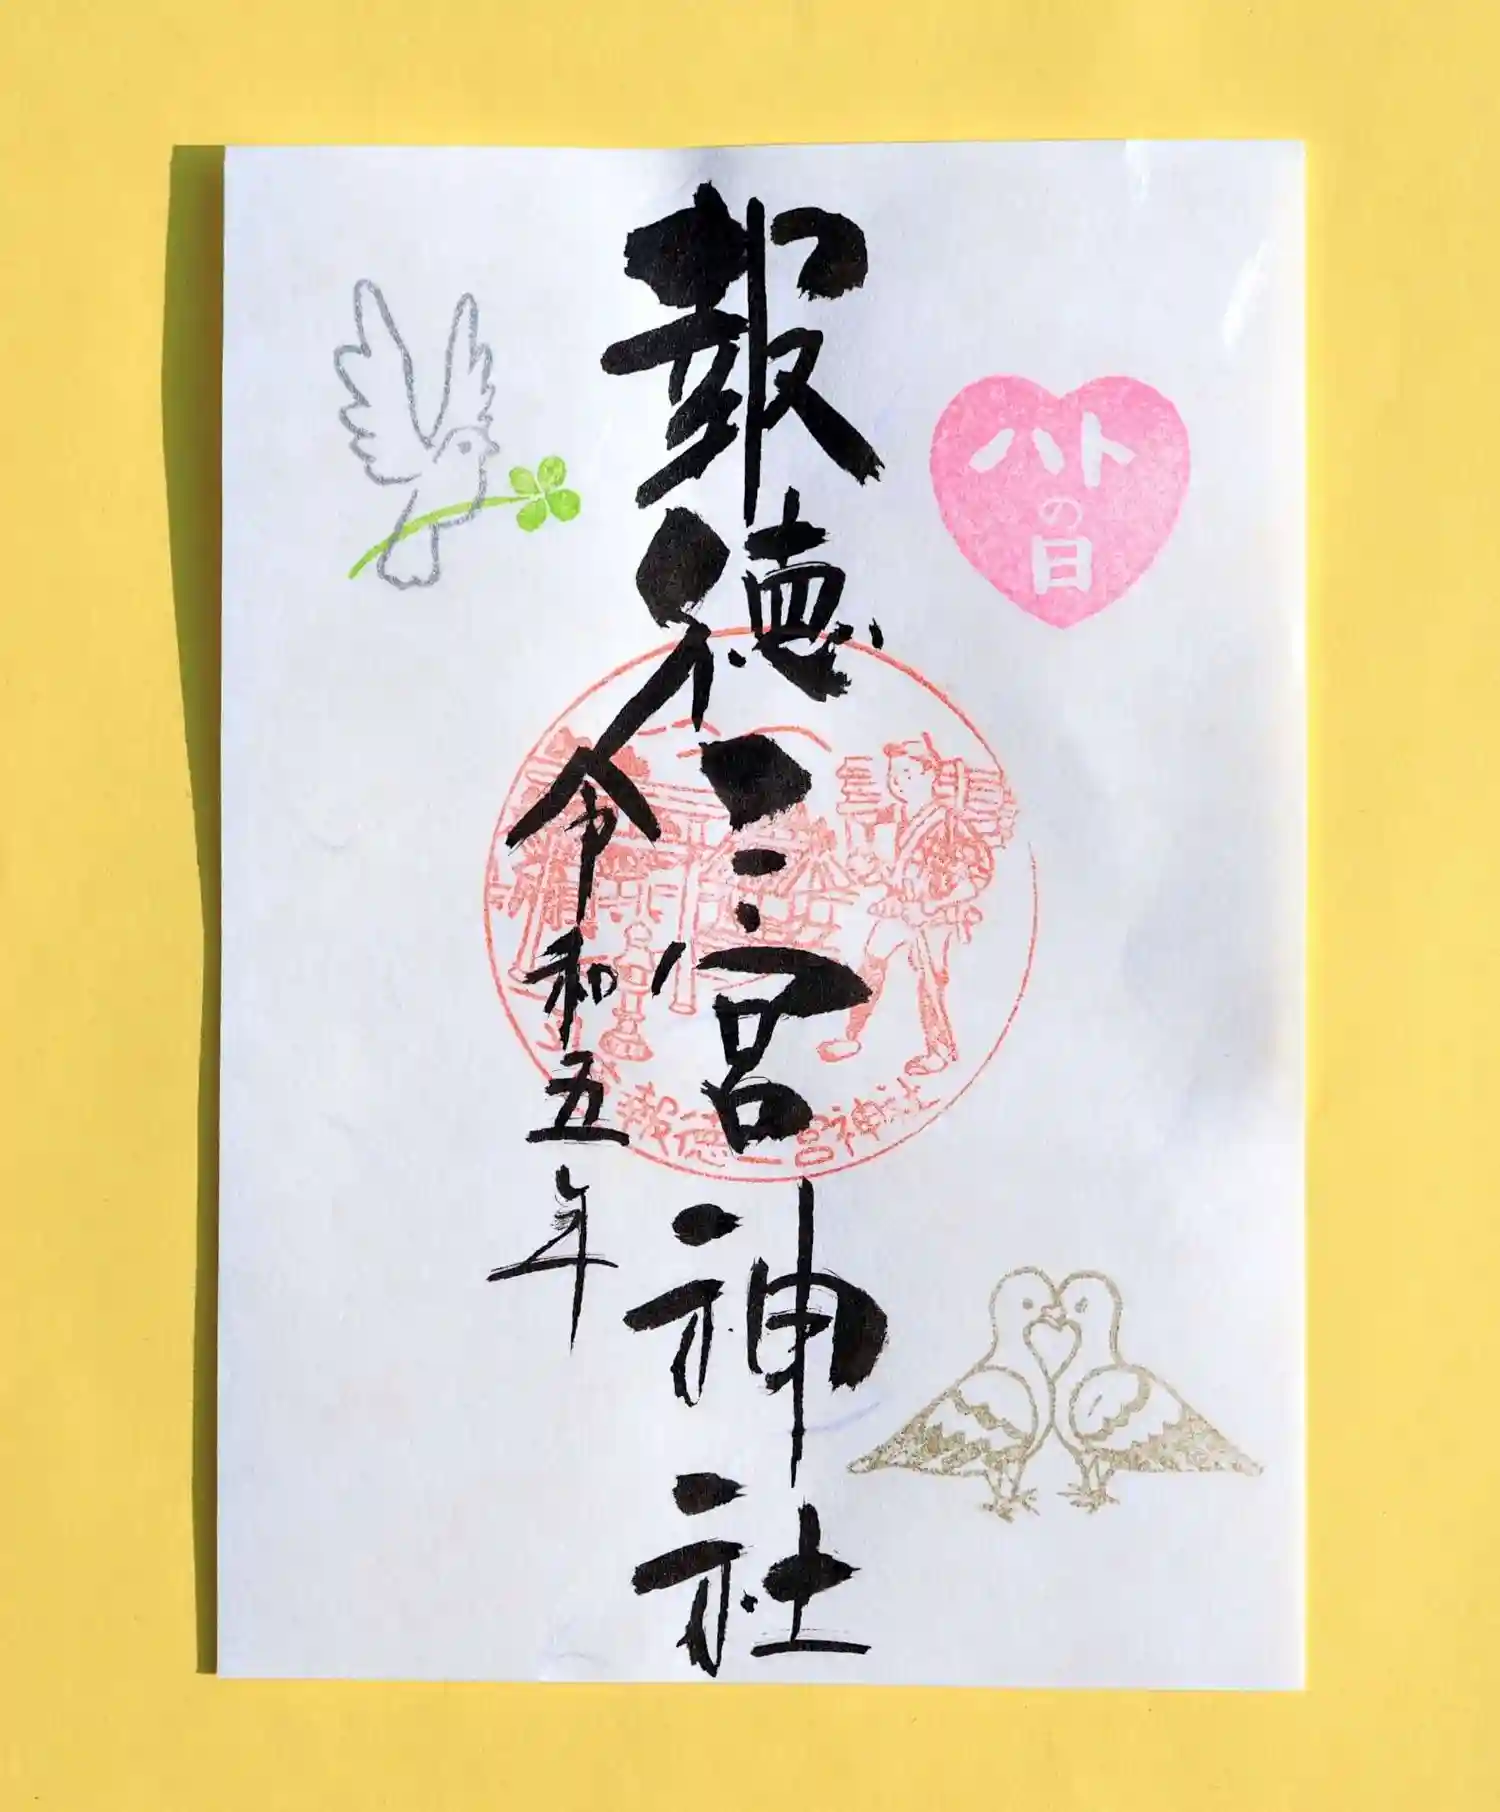 ハト
の
日
報徳二宮神社
令和五年
報徳二宮神社